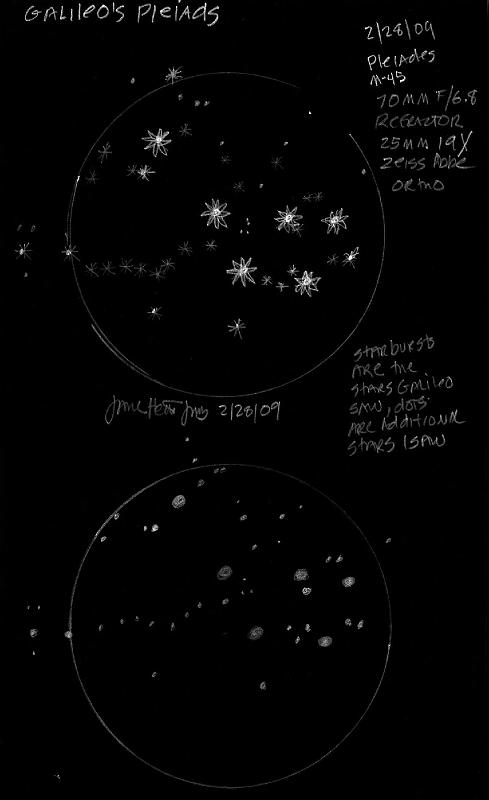 GALILEO'S PLEIADS
2/28/09
PLEIADES
M-45
70MM F/6.8
REFRACTOR
25MM 19X
ZEISS
ORTHO
STARBURSTS
ARE THE
STARS GALILEO
SAW, DOTS
ARE ADDITIONAL
STARS I SAW
2/28/09